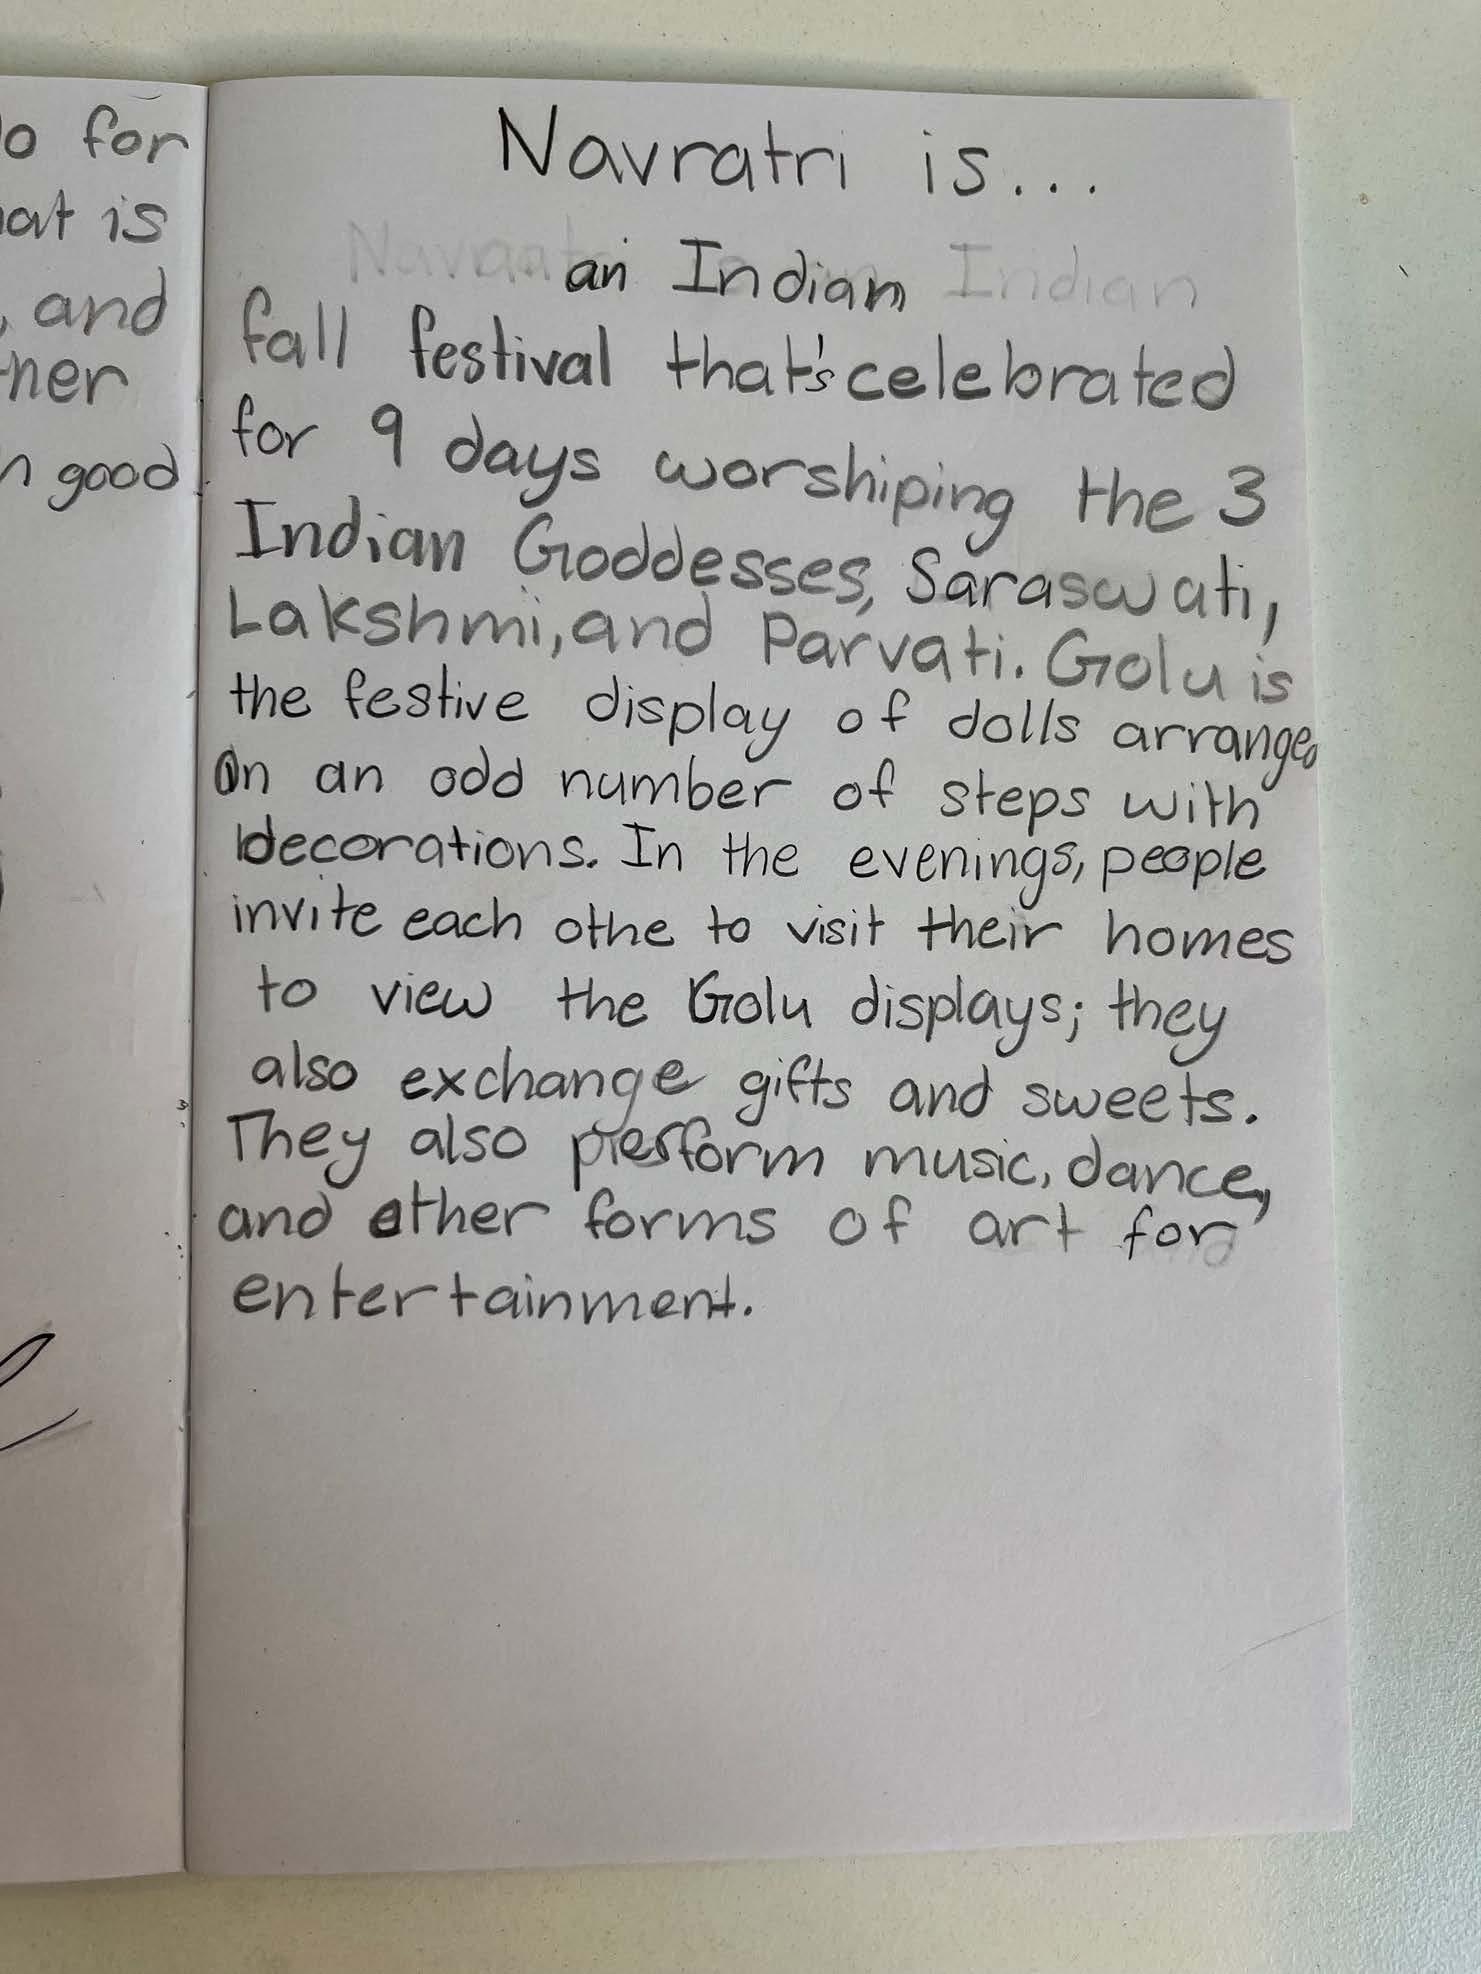 o for
at is
, and
ner
n good
Navratri is...
an Indian
fall festival that's celebrated
for 9 days worshiping the 3
Indian Goddesses, Saraswati,
Lakshmi, and Parvati. Golu is
the festive display of dolls arranged
On an odd number of steps with
decorations. In the evenings, people
invite each othe to visit their homes
to view the Golu displays; they
also exchange gifts and sweets.
They also perform music, dance,
and other forms of art for
entertainment.